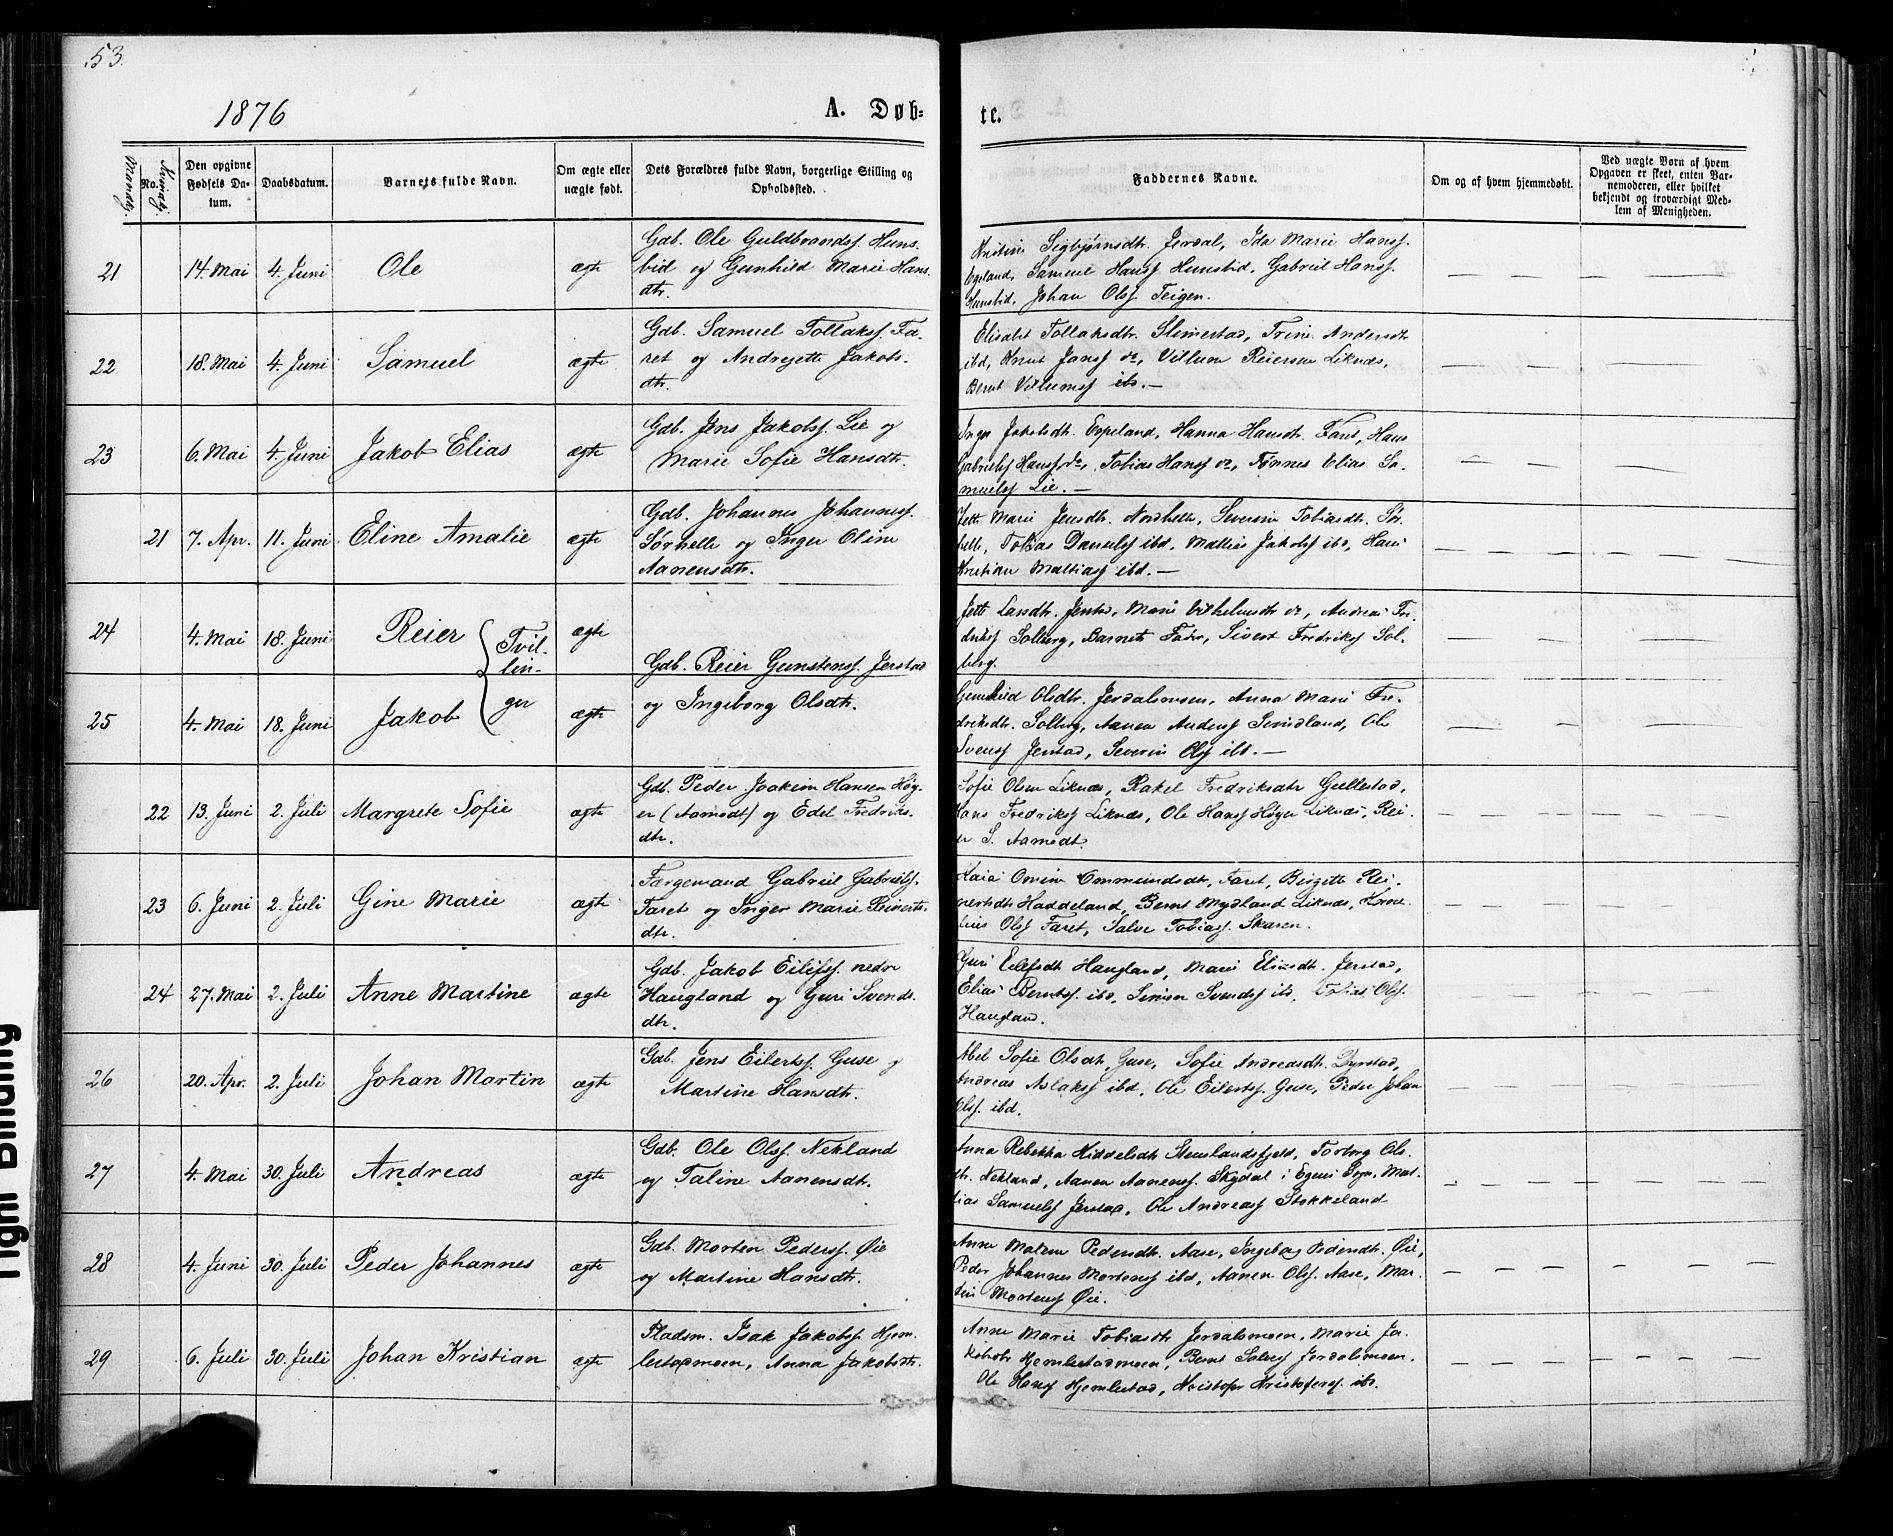 53.
1876
A. Døb-
te.
Mandkj.
No.
Kvindkj.
Den opgivne Fødsels Da-tum.
Daabsdatum.
Barnets fulde Navn.
Om ægte eller uægte født.
Dets Forældres fulde Navn, borgerlige Stilling og Opholdssted.
Faddernes Navne.
Om og af hvem hjemmedøbt.
Ved uægte Børn af hvem Opgaven er skeet, enten Bar-nemoderen, eller hvilket bekjendt og troværdigt Med-lem af Menigheden.
21 14. Mai 4. Juni Ole ægte
Gdb. Ole Guldbrandss. Huns-
bid og Gunhild Marie Hans-
dtr.
Kristine Sigbjørnsdtr. Jerdal, Ida Marie Hanss.
Egeland, Samuel Hanss Hunsbid, Gabriel Hanss.
Hunsbid, Johan Olss. Teigen.
22 18. Mai 4. Juni Samuel ægte
Gdb. Samuel Tollakss. Fa-
ret og Andrejette Jakobs-
dtr.
Elisabet Tollaksdtr. Slimestad, Trine Andersdtr
ibd, Knut Janss do, Villum Reiersen Liknes,
Bernt Villumss ibd. —
23 6. Mai 4. Juni Jakob Elias ægte
Gdb. Jens Jakobss. Lie og
Marie Sofie Hansdtr.
Inger Jakobsdtr. Espeland, Hanna Hansdtr. Faret, Hans
Gabrielss Hanss do, Tobias Hanss do, Tønnes Elias Sa-
muelss Lie. —
21 7. Apr. 11. Juni Eline Amalie ægte
Gdb. Johannes Johanness.
Sørhelle og Inger Oline
Aanensdtr.
Jette Marie Jensdtr. Nordhelle, Severine Tobiasdtr. Sør-
helle, Tobias Danielss ibd, Mathias Jakobss ibd, Hans
Kristian Mathiass ibd. —
24 4. Mai 18. Juni Reier ægte
Tvil-
lin-
ger
Gdb. Reier Gunstenss. Jerstad
Jette Larsdtr. Jerstad, Marie Vilhelmsdtr do, Andreas Fre-
drikss Solberg, Barnets Fader, Sivert Fredrikss Sol-
berg.
25 4. Mai 18. Juni Jakob ægte
og Ingeborg Olsdtr.
Gunhild Olsdtr. Jerdalsmoen, Anna Marie Fre-
driksdtr. Solberg, Aanen Anderss Svindland, Ole
Svenss Jerstad, Severin Olss ibd. —
22 13. Juni 2. Juli Margrete Sofie ægte
Gdb. Peder Joakim Hansen Høy-
er (Aamodt) og Edel Fredriks-
dtr.
Sofie Olsen Liknes, Rakel Fredriksdtr Gullestad,
Hans Fredrikss Liknes, Ole Hanss Høyer Liknes, Rei-
er S. Aamodt.
23 6. Juni 2. Juli Gine Marie ægte
Færgemand Gabriel Gabriels.
Faret og Inger Marie Reinerts-
dtr.
Kaia Ovine Ommundsdtr, Faret, Birgitte Rei-
nertsdtr Haddeland, Bernt Mydland Liknes, Korne-
lius Olss Faret, Salve Tobiass. Skaren.
24 27. Mai 2. Juli Anne Martine ægte
Gdb. Jakob Eilifss. nedre
Haugland og Guri Svends-
dtr.
Guri Eilifsdtr Haugland, Marie Eliasdtr. Jerstad,
Elias Berntss. ibd, Simon Svendss ibd, Tobias Olss.
Haugland.
26 20. Apr. 2. Juli Johan Martin ægte
Gdb. Jens Eilertss. Guse og
Martine Hansdtr.
Abel Sofie Olsdtr. Guse, Sofie Andreasdtr. Dyrstad,
Andreas Aslakss ibd, Ole Eilertss. Guse, Peder Johan
Olss. ibd.
27 4. Mai 30. Juli Andreas ægte
Gdb. Ole Olss. Nekland
og Taline Aanensdtr.
Anna Rebekka Kiddelsdtr Stenslandsfjeld, Torborg Ols-
dtr. Nekland, Aanen Aanenss. Skogdal i Egens Sogn, Mat-
tias Samuelss Jerstad, Ole Andreass Stokkeland
28 4. Juni 30. Juli Peder Johannes ægte
Gdb. Morten Pederss. Øie
og Martine Hansdtr.
Anne Malene Pedersdtr. Aase, Ingeborg Pedersdtr. Øie,
Peder Johannes Mortenss ibd, Aanen Olss. Aase, Mar-
tin Mortenss Øie.
29 6. Juli 30. Juli Johan Kristian ægte
Pladsm. Isak Jakobss. Hjem-
lestadmoen, Anna Jakobsdtr.
Anne Marie Tobiasdtr Jerdalsmoen, Marie Ja-
kobsdtr Hjemlestadmoen, Bernt Salvess Jerdalsmoen,
Ole Hanss Hjemlestad, Kristofer Kristoferss. ibd.
Tight Binding